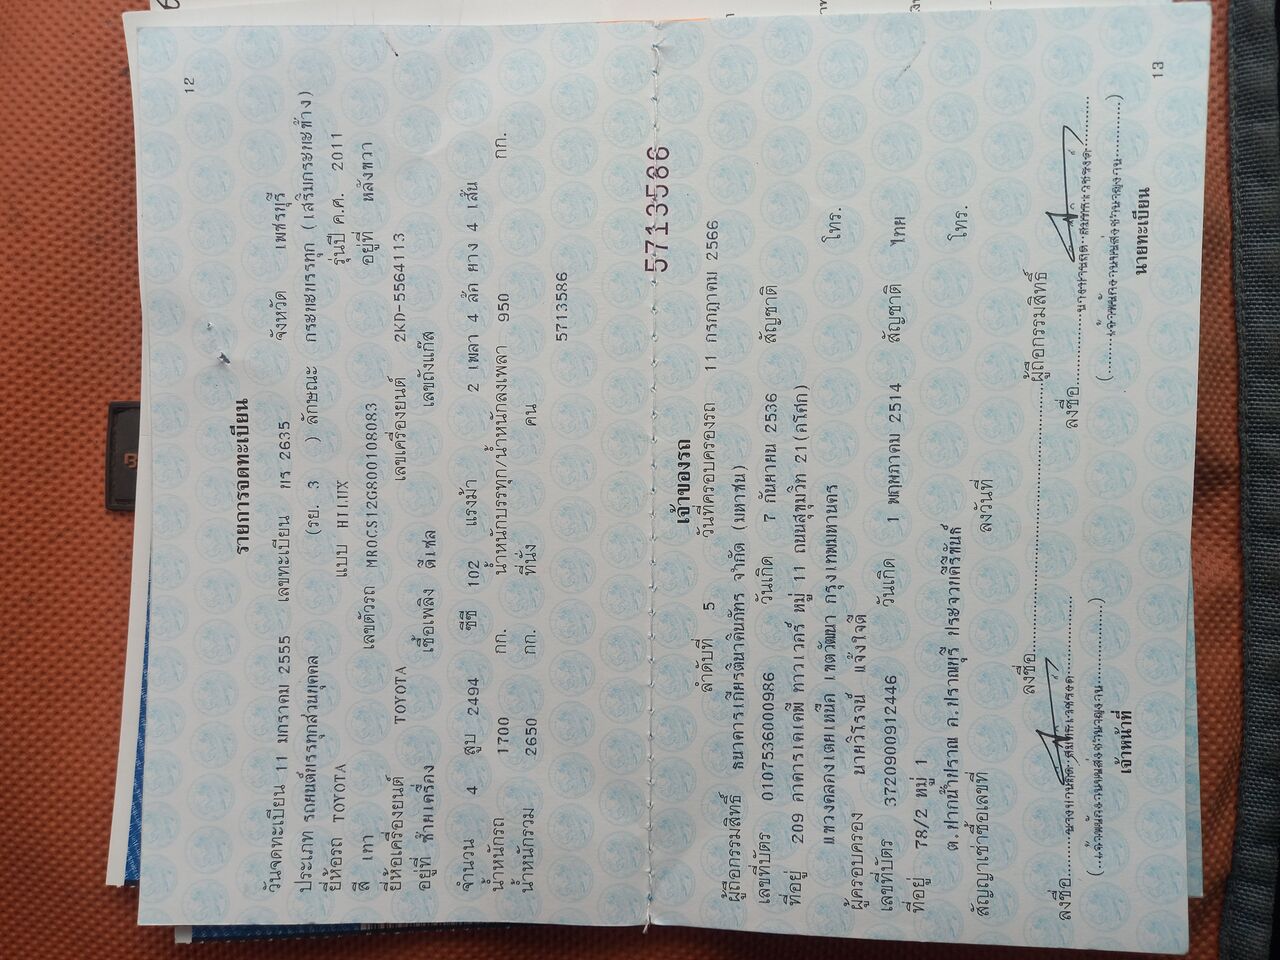 12
รายการจดทะเบียน
วันจดทะเบียน 11 มกราคม 2555 เลขทะเบียน บร 2635 จังหวัด เพชรบุรี
ประเภท รถยนต์บรรทุกส่วนบุคคล (รย. 3 ) ลักษณะ กระบะบรรทุก (เสริมกระบะข้าง)
ยี่ห้อรถ TOYOTA แบบ รุ่นปี ค.ศ. 2011
สี เทา เลขตัวรถ MR0CS12G800108083 อยู่ที่ หลังขวา
ยี่ห้อเครื่องยนต์ TOYOTA เลขเครื่องยนต์ 2KD-5564113
อยู่ที่ ซ้ายเครื่อง เชื้อเพลิง ดีเซล เลขถังแก๊ส
จำนวน 4 สูบ 2494 ซีซี 102 แรงม้า 2 เพลา 4 ล้อ ยาง 4 เส้น
น้ำหนักรถ 1700 กก. น้ำหนักบรรทุก/น้ำหนักลงเพลา 950 กก.
น้ำหนักรวม 2650 กก. ที่นั่ง คน
5713586
5713586
เจ้าของรถ
ลำดับที่ 5 วันที่ครอบครองรถ 11 กรกฎาคม 2566
ผู้ถือกรรมสิทธิ์ ธนาคารเกียรตินาคินภัทร จำกัด (มหาชน)
เลขที่บัตร 0107536000986 วันเกิด 7 กันยายน 2536 สัญชาติ
ที่อยู่ 209 อาคารเคเคพี ทาวเวอร์ หมู่ 11 ถนนสุขุมวิท 21(อโศก)
แขวงคลองเตยเหนือ เขตวัฒนา กรุงเทพมหานคร โทร.
ผู้ครอบครอง นายวิโรจน์ แจ้งใจดี
เลขที่บัตร 3720900912446 วันเกิด 1 พฤษภาคม 2514 สัญชาติ ไทย
ที่อยู่ 78/2 หมู่ 1
ต.ปากน้ำปราณ อ.ปราณบุรี ประจวบคีรีขันธ์ โทร.
สัญญาเช่าซื้อเลขที่ ลงวันที่
ลงชื่อ ผู้ถือกรรมสิทธิ์
ลงชื่อ ลงชื่อ
(เจ้าพนักงานขนส่งชำนาญงาน) (เจ้าพนักงานขนส่งชำนาญงาน)
เจ้าหน้าที่ นายทะเบียน
13